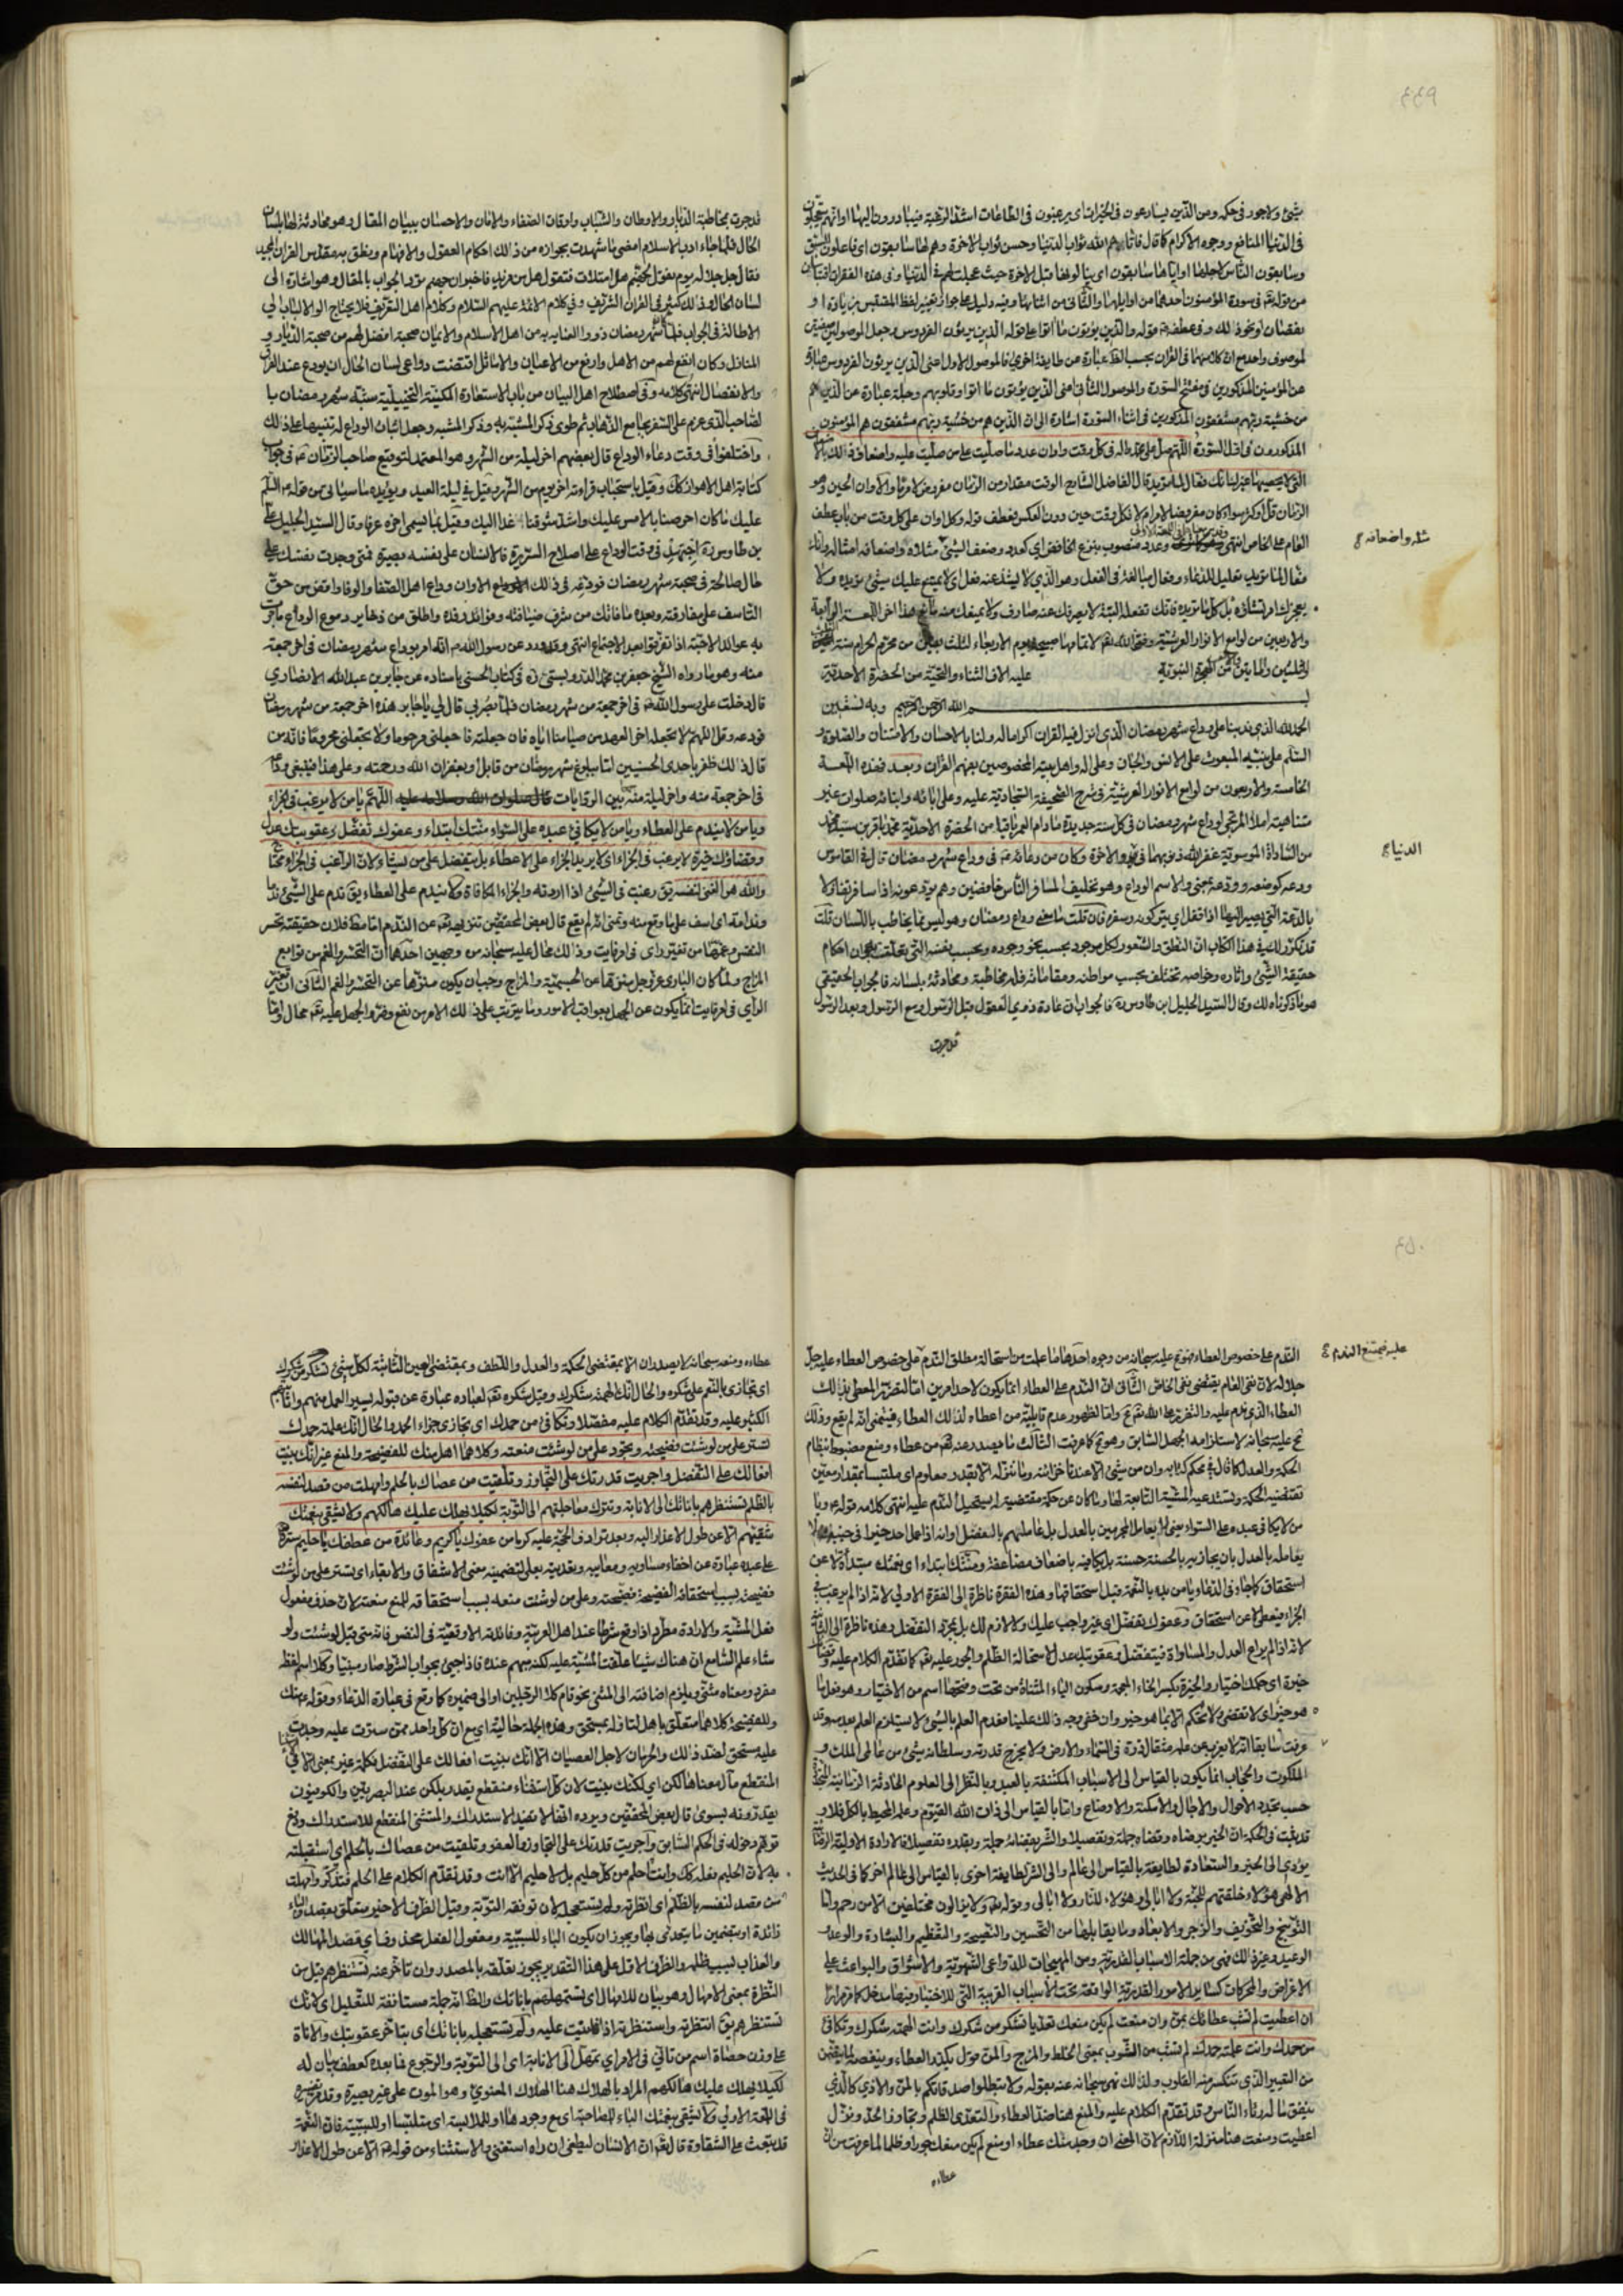 ٤٤٩
بشئ ولاجور فى حكمه ومن الذين يسارعون فى الخيرات اى يرغبون فى الطاعات اشد الرغبة فيبادرون اليها او انهم يتعجلون
فى الدنيا المنافع ووجوه الاكرام كما قال فاتاهم الله ثواب الدنيا وحسن ثواب الاخرة وهم لها سابقون اى فاعلون السبق
وسابقون الناس لاجلها او اياها سابقون اى ينالونها قبل الاخرة حيث عجلت لهم فى الدنيا وفى هذه الفقرات اقتباس
من قوله تعالى فى سورة المؤمنون احدهما من اوايلها والثانى من اثنائها وفيه دليل على جواز تغيير لفظ المقتبس بزيادة او
نقصان او نحو ذلك وفى عطفه قوله والذين يؤتون ما اتوا على قوله الذين يرثون الفردوس وجعل الموصولين صفتين
لموصوف واحد مع ان كلا منهما فى القران بحسب الظ عبارة عن طايفة اخرى فالموصول الاول اعنى الذين يرثون الفردوس عبارة
عن المؤمنين المذكورين فى مفتتح السورة والموصول الثانى اعنى الذين يؤتون ما اتوا وقلوبهم وجلة عبارة عن الذين هم
من خشية ربهم مشفقون المذكورين فى اثناء السورة اشارة الى ان الذين هم من خشية ربهم مشفقون هم المؤمنون
المذكورون فى اول السورة اللهم صل على محمد واله فى كل وقت واوان عدد ما صليت على من صليت عليه واضعاف ذلك بالاضعاف
التى لا يحصيها غيرك انك فعال لما تريد قال الفاضل الشارح الوقت مقدار من الزمان مفروض لامر ما والاوان الحين وهو
الزمان قل او كثر سواء كان مفروضا لامر ام لا فكل وقت حين دون العكس فعطف قوله وكل اوان على كل وقت من باب عطف
العام على الخاص انتهى وعدد منصوب بنزع الخافض اى كعدد وضعف الشئ مثلاه واضعافه امثاله وانك
مثله واضعافه
فعال لما تريد تعليل للدعاء وفعال مبالغة فى الفعل وهو الذى لا يشذ عنه فعل اى لا يمتنع عليك شئ تريده ولا
يعجزك امر تشاؤه بل كل ما تريده فانك تفعله البتة لا يصرفك عنه صارف ولا يمنعك منه مانع هذا اخر اللمعة الرابعة
والاربعين من لوامع الانوار العرشية وفق الله تعالى لاتمامها صبيحة يوم الاربعاء لثلث بقين من محرم الحرام سنة
وثلثين والمايتين والالف من الهجرة النبوية عليه الاف الثناء والتحية من الحضرة الاحدية
بسم الله الرحمن الرحيم وبه نستعين
الحمد لله الذى ندبنا على وداع شهر رمضان الذى انزل فيه القران اكراما له ولنا بالاحسان والامتنان والصلوة و
السلم على نبيه المبعوث على الانس والجان وعلى اله واهل بيته المخصوصين بفهم القران وبعد فهذه اللمعة
الخامسة والاربعون من لوامع الانوار العرشية فى شرح الصحيفة السجادية عليه وعلى ابائه وابنائه صلوات غير
متناهية املاء المرتجى لوداع شهر رمضان فى كل سنة جديدة مادام العمر باقيا من الحضرة الاحدية محمد باقر بن سيد محمد
من السادات الموسوية غفر الله ذنوبهما فى والاخرة وكان من دعائه ع فى وداع شهر رمضان قال فى القاموس
الدنيا
ودعه كوضعه وودعه بمعنى والاسم الوداع وهو تخليف المسافر الناس خافضين وهم يودعونه اذا سافر تفاؤلا
بالدعة التى يصير اليها اذا قفل اى يتركونه وسفره فان قلت ما معنى وداع رمضان وهو ليس مما يخاطب باللسان قلت
قد تكرر لك فى هذا الكتاب ان النطق والشعور لكل موجود بحسب نحو وجوده وبحسب نفسه التى تعلقت به وان احكام
حقيقة الشئ واثاره وخواصه تختلف بحسب مواطنه ومقاماته فله مخاطبة ومحادثة بلسانه فالجواب الحقيقى
هو ما ذكرناه لك وقال السيد الجليل ابن طاوس ره فالجواب ان عادة ذوى العقول قبل الرسول ومع الرسول وبعد الرسول
قد جرت
قد جرت بمخاطبة الديار والاوطان والشباب واوقات الصفاء والامان والاحسان ببيان المقال وهو محادثة لها بلسان
الحال فلما جاء ادب الاسلام امضى ما شهدت بجوازه من ذلك احكام العقول والافهام ونطق به مقدس القران المجيد
فقال جل جلاله يوم نقول لجهنم هل امتلات فتقول هل من مزيد فاخبر ان جهنم تؤدى الجواب بالمقال وهو اشارة الى
لسان الحال وذلك كثير فى القران الشريف وفى كلام الائمة عليهم السلام وكلام اهل التعريف فلا يحتاج اولو الالباب الى
الاطالة فى الجواب فلما كان شهر رمضان ذووا العناية به من اهل الاسلام والايمان صحبة افضل لهم من صحبة الديار و
المنازل وكان انفع لهم من الاهل وارفع من الاعيان والاماثل اقتضت دواعى لسان الحال ان يودع عند الفراق
والانفصال انتهى كلامه وفى اصطلاح اهل البيان من باب الاستعارة المكنية التخييلية شبه شهر رمضان با
لصاحب الذى عزم على السفر بجامع الذهاب ثم طوى ذكر المشبه به وذكر المشبه وجعل اثبات الوداع له تنبيها على ذلك
واختلفوا فى وقت دعاء الوداع قال بعضهم اخر ليلة من الشهر وهو المعتمد لتوقيع صاحب الزمان ع فى جواب
كتابة اهل الاهواز كك وقيل باستحباب قراءته اخر يوم من الشهر وقيل فى ليلة العيد ويؤيده ما سياتى من قوله ع السلم
عليك ما كان احرصنا بالامس عليك واشد شوقنا غدا اليك وقيل بما يسمى اخره عرفا وقال السيد الجليل على
بن طاوس ره اجتهد فى وقت الوداع على اصلاح السريرة فالانسان على نفسه بصيرة فمتى وجدت نفسك على
حال صالحة فى صحبة شهر رمضان فودعه فى ذلك الاوان وداع اهل الصفاء والوفاء واقض من حق
التاسف على مفارقته وبعده ما فاتك من شرف ضيافته وفوائد رفده واطلق من ذخاير دموع الوداع ما جرت
به عوائد الاحبة اذا تفرقوا بعد الاجتماع انتهى وقد ورد عن رسول الله ص انه امر بوداع شهر رمضان فى اخر جمعة
منه وهو ما رواه الشيخ جعفر بن محمد الدوريستى ره فى كتاب الحسنى باسناده عن جابر بن عبد الله الانصارى
قال دخلت على رسول الله ص فى اخر جمعة من شهر رمضان فلما بصر بى قال لى يا جابر هذه اخر جمعة من شهر رمضان
فودعه وقل اللهم لا تجعله اخر العهد من صيامنا اياه فان جعلته فاجعلنى مرحوما ولا تجعلنى محروما فانه من
قال ذلك ظفر باحدى الحسنيين اما ببلوغ شهر رمضان من قابل او بغفران الله ورحمته وعلى هذا فينبغى
فى اخر جمعة منه واخر ليلة منه بين الروايات اللهم يا من لا يرغب فى الجزاء
ويا من لا يندم على العطاء ويا من لا يكافئ عبده على السواء منتك ابتداء وعفوك تفضل وعقوبتك عدل
وقضاؤك خيرة لا يرغب فى الجزاء اى لا يريد الجزاء على الاعطاء بل يتفضل على من يشاء ولان الراغب فى الجزاء محتاج
والله هو الغنى لنفسه يق رغبت فى الشئ اذا اردته والجزاء المكافاة ولا يندم على العطاء يق ندم على الشئ ندما
وندامة اى اسف على ما وقع منه وتمنى انه لم يقع قال بعض المحققين تنزيهه تعالى عن الندم اما مط فلان حقيقته تحسر
النفس وغمها من تغير راى فى امر فايت وذلك محال عليه سبحانه من وجهين احدهما ان التحسر والغم من توابع
المزاج ولما كان البارى عز وجل منزها عن الجسمية والمزاج وجب ان يكون منزها عن التحسر والغم الثانى ان تغير
الراى فى امر فايت انما يكون عن الجهل بعواقب الامور وما يترتب على ذلك الامر من نفع وضر والجهل عليه تعالى محال واما
٤٥٠
الندم على خصوص العطاء فهو مح عليه سبحانه من وجوه احدها ما علمت من استحالة مطلق الندم على خصوص العطاء عليه جل
عليه فيمتنع الندم
جلاله لان نفى العام يقتضى نفى الخاص الثانى ان الندم على العطاء انما يكون لاحد امرين اما لتضرر المعطى بذلك
العطاء الذى ندم عليه والتضرر على الله تعالى مح واما لظهور عدم قابلية من اعطاه لذلك العطاء فيتمنى انه لم يقع وذلك
مح عليه سبحانه لاستلزامه الجهل السابق وهو مح كما عرفت الثالث ما يصدر عنه تعالى من عطاء ومنع مضبوط بنظام
الحكمة والعدل كما قال فى محكم كتابه وان من شئ الا عندنا خزائنه وما ننزله الا بقدر معلوم اى ملتبسا بمقدار معين
تقتضيه الحكمة وتستدعيه المشية التابعة لها وما كان عن حكمة مقتضية له يستحيل الندم عليه انتهى كلامه قوله ع ويا
من لا يكافئ عبده على السواء يعنى لا يعامل المجرمين بالعدل بل عاملهم بالتفضل وانه اذا عمل احد خيرا فى جنبه لا
يعامله بالعدل بان يجازيه بالحسنة حسنة بل يكافيه باضعاف مضاعفة ومنتك ابتداء اى نعمتك مبتدأة لا عن
استحقاق كما جاء فى الدعاء يا من بدء بالنعمة قبل استحقاقها وهذه الفقرة ناظرة الى الفقرة الاولى لانه اذا لم يرغب فى
الجزاء فيعطى لا عن استحقاق وعفوك تفضل اى غير واجب عليك ولا لازم لك بل بمجرد التفضل وهذه ناظرة الى الثانية
لانه اذا لم يراع العدل والمساواة فيتفضل وعقوبتك عدل لاستحالة الظلم والجور عليه تعالى كما تقدم الكلام عليه وقضاؤك
خيرة اى حكمك اختيار والخيرة بكسر الخاء المعجمة وسكون الياء المثناة من تحت وفتحها اسم من الاختيار وهو فعل ما
هو خير اى لا تقضى ولا تحكم الا بما هو خير وان خفى وجه ذلك علينا لعدم العلم بالشئ لا يستلزم العلم بعدمه وقد
عرفت سابقا انه لا يعزب عن علمه مثقال ذرة فى السماء والارض ولا يخرج قدرته وسلطانه شئ من عالمى الملك و
الملكوت والحجاب انما يكون بالقياس الى الاسباب المكتنفة بالعبد وبالنظر الى العلوم الحادثة الزمانية المتجددة
حسب تجدد الاحوال والاجال والامكنة والاوضاع واما بالقياس الى ذات الله القيوم وعلمه المحيط بالكل فلا و
قد ثبت فى الحكمة ان الخير برضاه وقضاه جملة وتفصيلا والشر بقضائه جملة وبقدره تفصيلا فالارادة الاولية الربانية
يؤدى الى الخير والسعادة لطايفة بالقياس الى عالم والى الشر لطايفة اخرى بالقياس الى عالم اخر كما فى الحديث
الالهى هؤلاء خلقتهم للجنة ولا ابالى وهؤلاء للنار ولا ابالى وقوله تعالى ولا يزالون مختلفين الا من رحم واما
التوبيخ والتخويف والزجر والابعاد وما يقابلها من التحسين والنصيحة والتعظيم والبشارة والوعد
الوعيد وغير ذلك فهى من جملة الاسباب القدرية ومن المهيجات للدواعى الشهوية والاشواق والبواعث على
الاغراض والحركات كسائر الامور القدرية الواقعة تحت الاسباب القريبة التى للاختيار فيها مدخل كما مر مرارا
ان اعطيت لم تشب عطائك بمن وان منعت لم يكن منعك تعديا تشكر من شكرك وانت الهمته شكرك وتكافئ
من حمدك وانت علمته حمدك لم تشب من الشوب بمعنى الخلط والمزج والمن قول يكدر العطاء وينغصه لما يتضمن
من التعيير الذى تنكسر منه القلوب ولذلك نهى سبحانه عنه بقوله ولا تبطلوا صدقاتكم بالمن والاذى كالذى
ينفق ماله رئاء الناس وقد تقدم الكلام عليه والمنع هنا ضد العطاء والتعدى الظلم وتجاوز الحد ونزل
اعطيت ومنعت هنا منزلة اللازم لان المعنى ان وجد منك عطاء او منع لم يكن منعك جورا وظلما لما عرفت من ان
عطاءه
عطاءه ومنعه سبحانه لا يصدران الا بمقتضى الحكمة والعدل واللطف وبمقتضى العين الثابتة لكل شئ تشكر من شكرك
اى تجازى بالنعم على شكره والحال انك الهمته شكرك وقيل شكره تعالى لعباده عبارة عن قبوله يسير العمل منهم واثابتهم
الكثير عليه وقد تقدم الكلام عليه مفصلا وتكافئ من حمدك اى تجازى جزاء الحمد والحال انك علمته حمدك
تستر على من لو شئت فضحته وتجود على من لو شئت منعته وكلاهما اهل منك للفضيحة والمنع غير انك بنيت
افعالك على التفضل واجريت قدرتك على التجاوز وتلقيت من عصاك بالحلم وامهلت من قصد لنفسه
بالظلم تستنظرهم باناتك الى الانابة وتترك معاجلتهم الى التوبة لكيلا يهلك عليك هالكهم ولا يشقى بنعمتك
شقيهم الا عن طول الاعذار اليه وبعد ترادف الحجة عليه كرما من عفوك يا كريم وعائدة من عطفك يا حليم ستره
على عبده عبارة عن اخفاء مساويه ومعايبه وتعديته بعلى لتضمينه معنى الاشفاق والابقاء اى تستر على من لو شئت
فضيحته بسبب استحقاقه الفضيحة فضحته وعلى من لو شئت منعه بسبب استحقاقه للمنع منعته لان حذف مفعول
فعل المشية والارادة مطرد اذا وقع شرطا عند اهل العربية وفائدته الاوقعية فى النفس فانه متى قيل لو شئت ولو
شاء علم السامع ان هناك شيئا علقت المشية عليه لكنه مبهم عنده فاذا جئ بجواب الشرط صار مبينا وكلا اسم لفظه
مفرد ومعناه مثنى ويلزم اضافته الى المثنى نحو قام كلا الرجلين او الى ضميره كما وقع فى عبارة الدعاء وقوله ع منك
وللفضيحة كلاهما متعلق باهل لتاوله بمستحق وهذه الجملة حالية اى مع ان كل واحد ممن سترت عليه وجدت
عليه مستحق لضد ذلك والحرمان لاجل العصيان الا انك بنيت افعالك على التفضل فكلمة غير بمعنى الا فى
المنقطع مآل معناها لكن اى لكنك بنيت لان كل استثناء منقطع يقدر بلكن عند البصريين والكوفيون
يقدرونه بسوى قال بعض المحققين ويرده انها لا تفيد الاستدراك والمستثنى المنقطع للاستدراك ودفع
توهم دخوله فى الحكم السابق واجريت قدرتك على التجاوز والعفو وتلقيت من عصاك بالحلم اى استقبلته
به لان الحليم بفعله كك وانت احلم من كل حليم بل لا حليم الا انت وقد تقدم الكلام على الحلم فتذكر وامهلت
من قصد لنفسه بالظلم اى انظرته ولم تستعجله لان توفقه التوبة وقيل الظرف الاخير متعلق بقصد والباء
زائدة او بتضمين ما يتعدى بها ويجوز ان يكون الباء للسببية ومفعول الفعل محذوفا اى قصد المهالك
والعذاب بسبب ظلمه والظرف الاول على هذا التقدير يجوز تعلقه بالمصدر وان تاخر عنه تستنظرهم قيل من
النظرة بمعنى الامهال وهو بيان للامهال اى تستمهلهم باناتك والظ انه جملة مستانفة للتعليل اى لانك
تستنظرهم يق انتظرته واستنظرته اذا تانيت عليه ولم تستعجله باناتك اى بتاخر عقوبتك والاناة
على وزن حصاة اسم من تانى فى الامر اى تمهل الى الانابة اى الى التوبة والرجوع فما بعده كعطف بيان له
لكيلا يهلك عليك هالكهم المراد بالهلاك هنا الهلاك المعنوى وهو الموت على غير بصيرة وقد مر تفسيره
فى اللمعة الاولى ولا يشقى بنعمتك الباء للمصاحبة اى مع وجودها او للملابسة اى متلبسا او للسببية فان النعمة
قد تبعث على الشقاوة قال تعالى ان الانسان ليطغى ان راه استغنى والاستثناء من قوله ع الا عن طول الاعذار